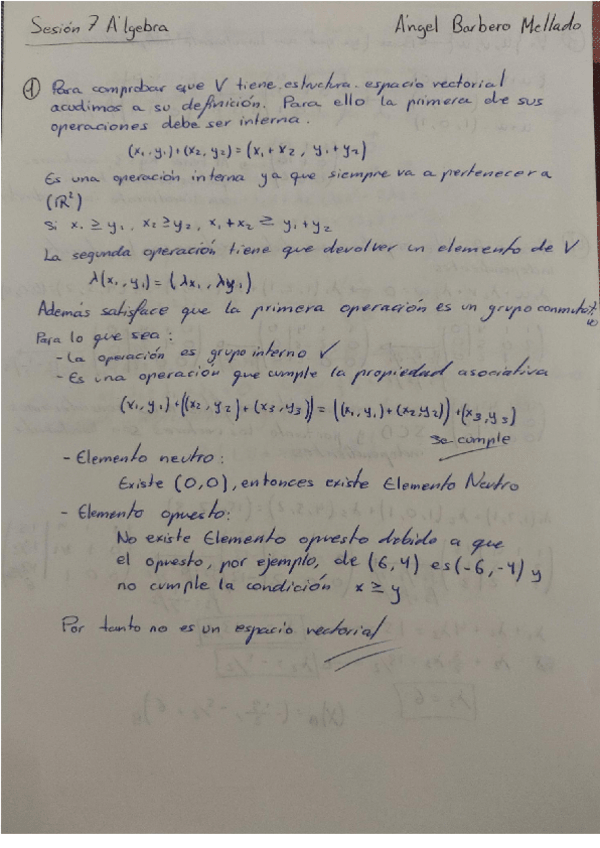 Sesión 7 Álgebra Ángel Barbero Mellado
① Para comprobar que V tiene estructura espacio vectorial
acudimos a su definición. Para ello la primera de sus
operaciones debe ser interna.
(x₁,y₁)+(x₂,y₂)=(x₁+x₂, y₁+y₂)
Es una operación interna ya que siempre va a pertenecer a
(ℝ²)
Si x₁ ≥ y₁, x₂ ≥ y₂, x₁+x₂ ≥ y₁+y₂
La segunda operación tiene que devolver un elemento de V
λ(x₁,y₁)=(λx₁, λy₁)
Además satisface que la primera operación es un grupo conmutativo
Para lo que sea:
- La operación es grupo interno V
- Es una operación que cumple la propiedad asociativa
(x₁,y₁)+((x₂,y₂)+(x₃,y₃))=((x₁,y₁)+(x₂y₂))+(x₃,y₃)
se cumple
- Elemento neutro:
Existe (0,0), entonces existe Elemento Neutro
- Elemento opuesto:
No existe Elemento opuesto debido a que
el opuesto, por ejemplo, de (6,4) es (-6,-4) y
no cumple la condición x ≥ y
Por tanto no es un espacio vectorial